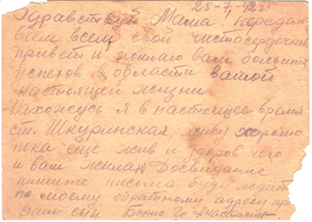 Здравствуй Мама! Передаю
вам всем свой чистосердечный
привет и желаю вам больших
успехов в области вашей
настоящей жизни
Нахожусь я в настоящее время
ст. Шкуринская, живу хорошо
пока еще жив и здоров чего
и вам желаю Досвидание
пишите письма буду ждать
по моему обратному адресу
Ваш сын